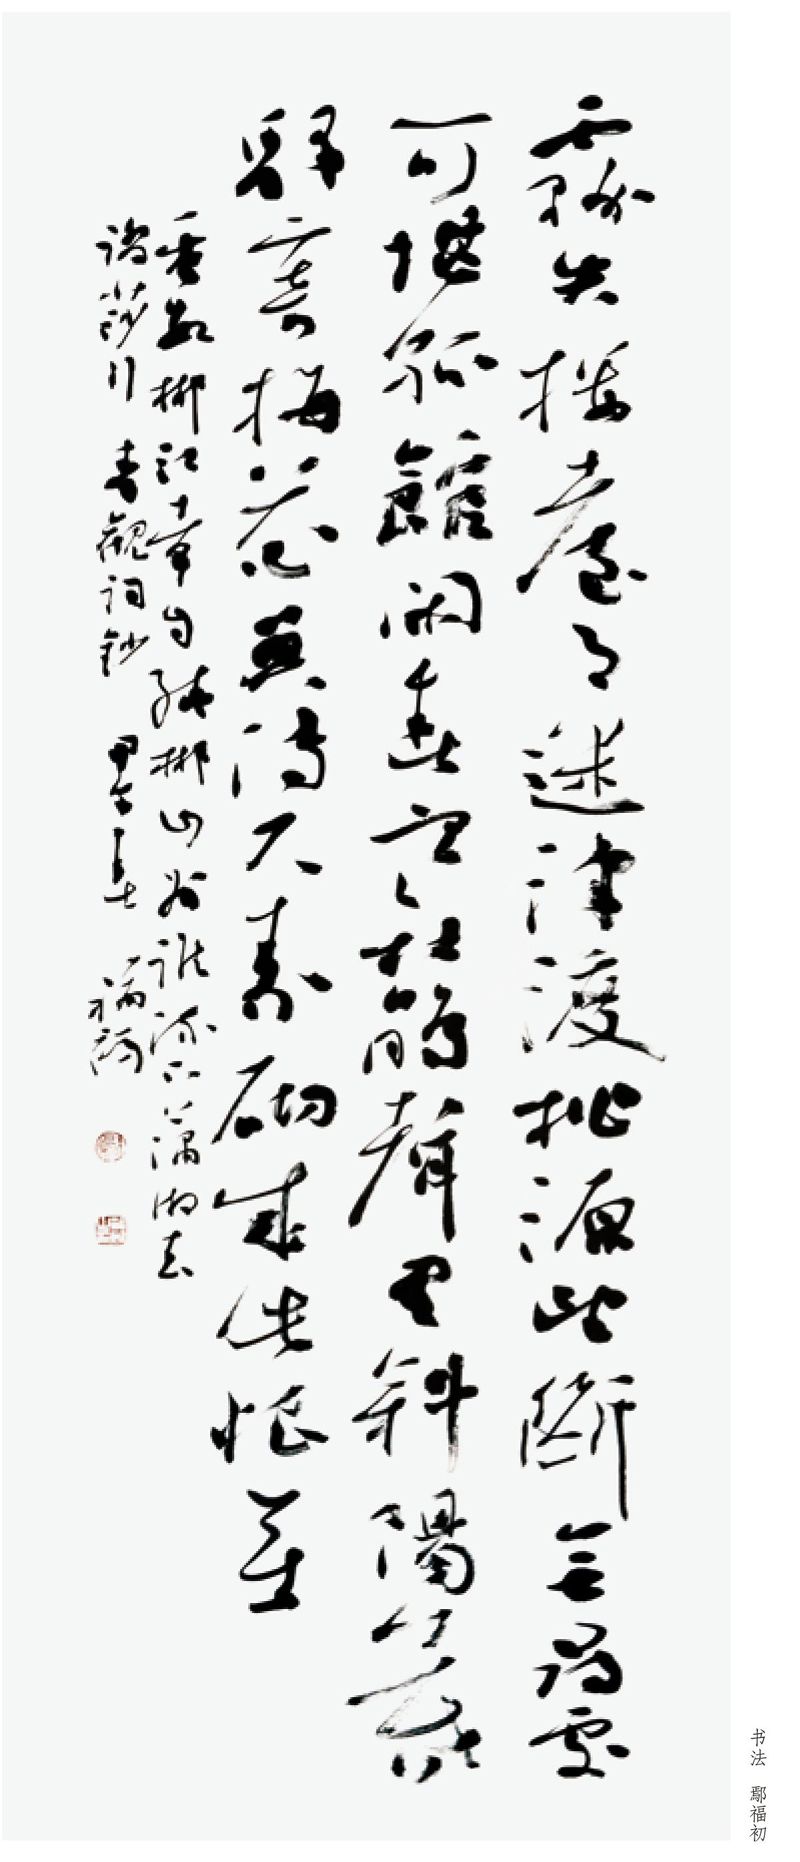 霧失樓臺月迷津渡桃源望斷無尋處
可堪孤館閉春寒杜鵑聲里斜陽暮
驛寄梅花魚傳尺素砌成此恨無
重數郴江幸自繞郴山為誰流下瀟湘去
踏莎行 秦觀詞鈔 甲午 福初
书法 鄢福初